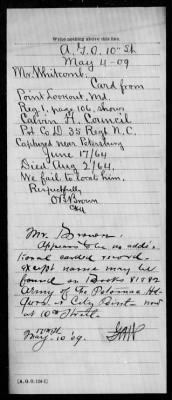 Write nothing above this line.
A.G.O. 10th St
May 4-09
Mr. Whitcomb.
Card from
Point Lookout, Md.
Reg. 1, page 106, shows
Calvin H. Council
Pvt Co D. 35 Regt N.C.
Captured near Petersburg
June 17/64
Died Aug 2/64.
We fail to locate him.
Respectfully
O.B. Brown
Mr. Brown.
Appears to be no addi-
tional carded record.
Except name may be
found on Books 81582
Army of the Potomac Hd-
qrs. & City Point now
at 10th Street.
May-10'09.